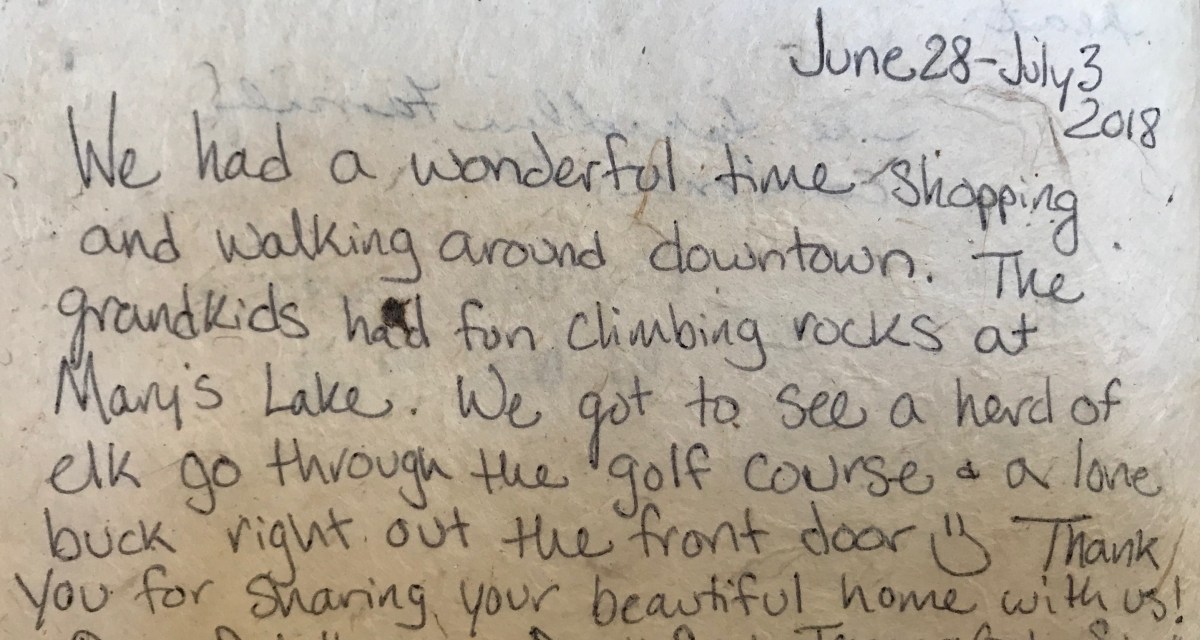 June 28-July 3
2018
We had a wonderful time shopping
and walking around downtown. The
grandkids had fun climbing rocks at
Mary's Lake. We got to see a herd of
elk go through the golf course & a lone
buck right out the front door :) Thank
you for sharing your beautiful home with us!